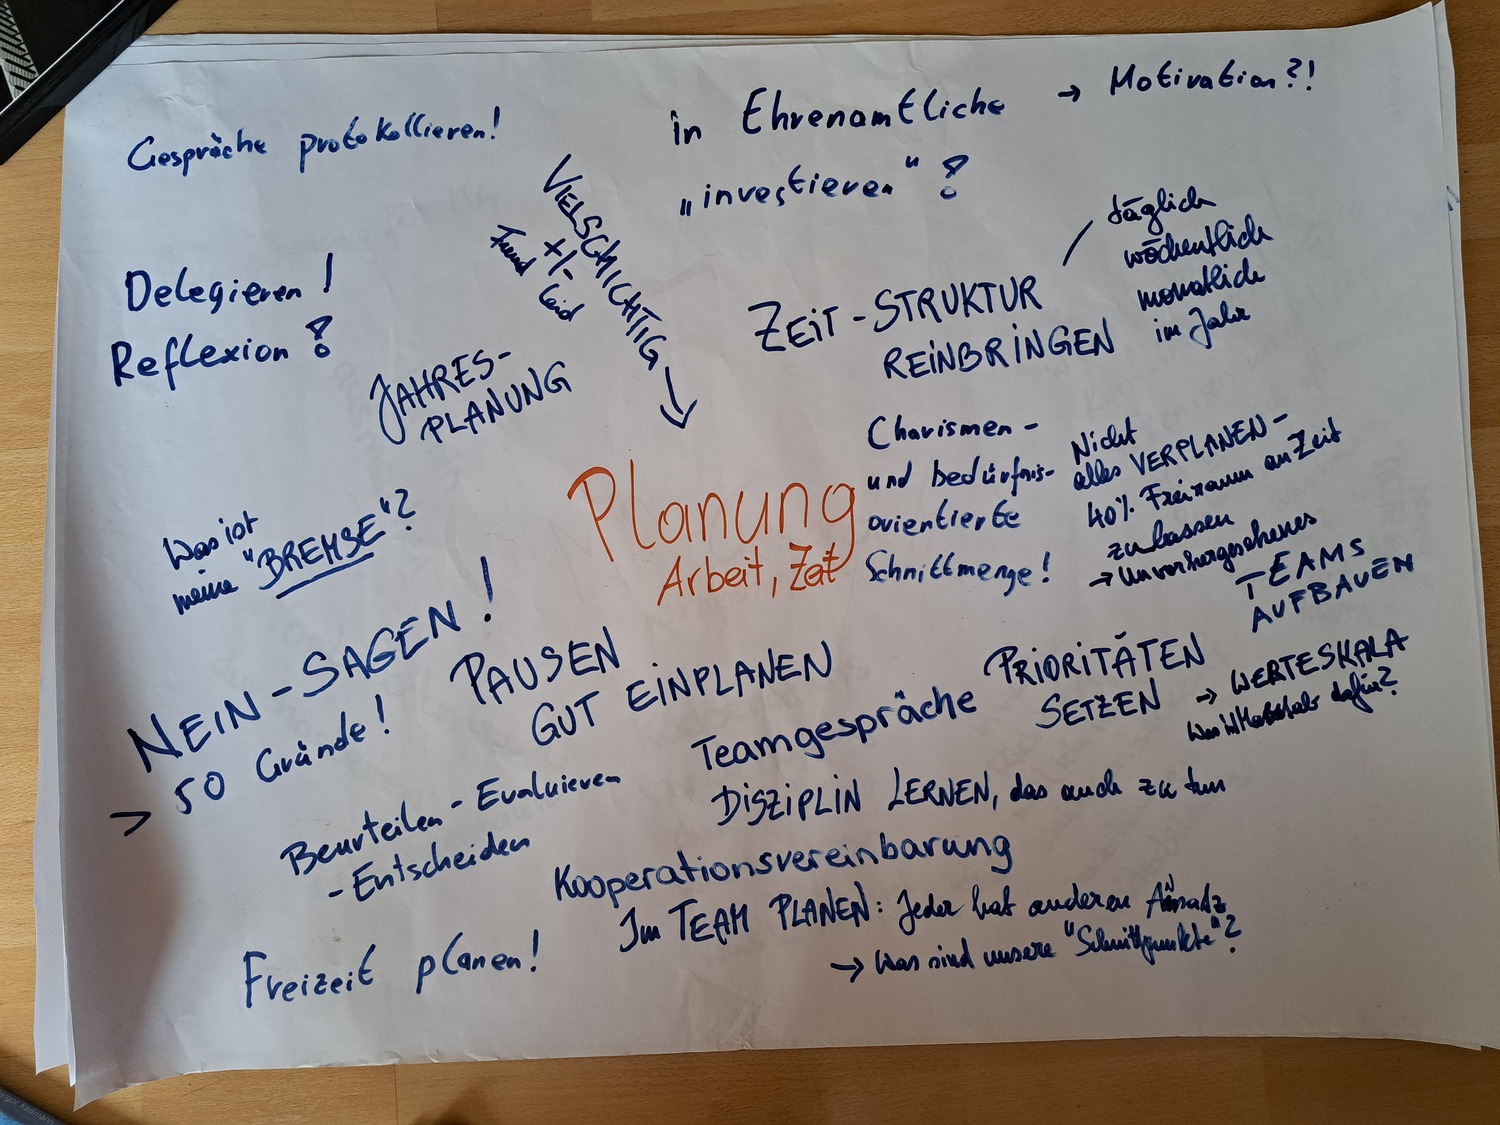 Gespräche protokollieren!
in Ehrenamtliche → Motivation?!
„investieren" ?
VIELSCHICHTIG →
+/-
Freud
Leid
täglich
wöchentlich
monatlich
im Jahr
Delegieren!
Reflexion ?
ZEIT-STRUKTUR
REINBRINGEN
JAHRES-
PLANUNG
Planung
Arbeit, Zeit
Charismen-
und bedürfnis-
orientierte
Schnittmenge!
Nicht
alles VERPLANEN-
40% Freiraum an Zeit
zu lassen
→ Unvorhergesehenes
TEAMS
AUFBAUEN
Was ist
meine "BREMSE"?
NEIN-SAGEN!
> 50 Gründe!
PAUSEN
GUT EINPLANEN
PRIORITÄTEN
SETZEN → WERTESKALA
Was ist Maßstab dafür?
Teamgespräche
DISZIPLIN LERNEN, das auch zu tun
Beurteilen - Evaluieren
- Entscheiden
Kooperationsvereinbarung
Im TEAM PLANEN: Jeder hat anderen Ansatz
→ Was sind unsere "Schnittpunkte"?
Freizeit planen!